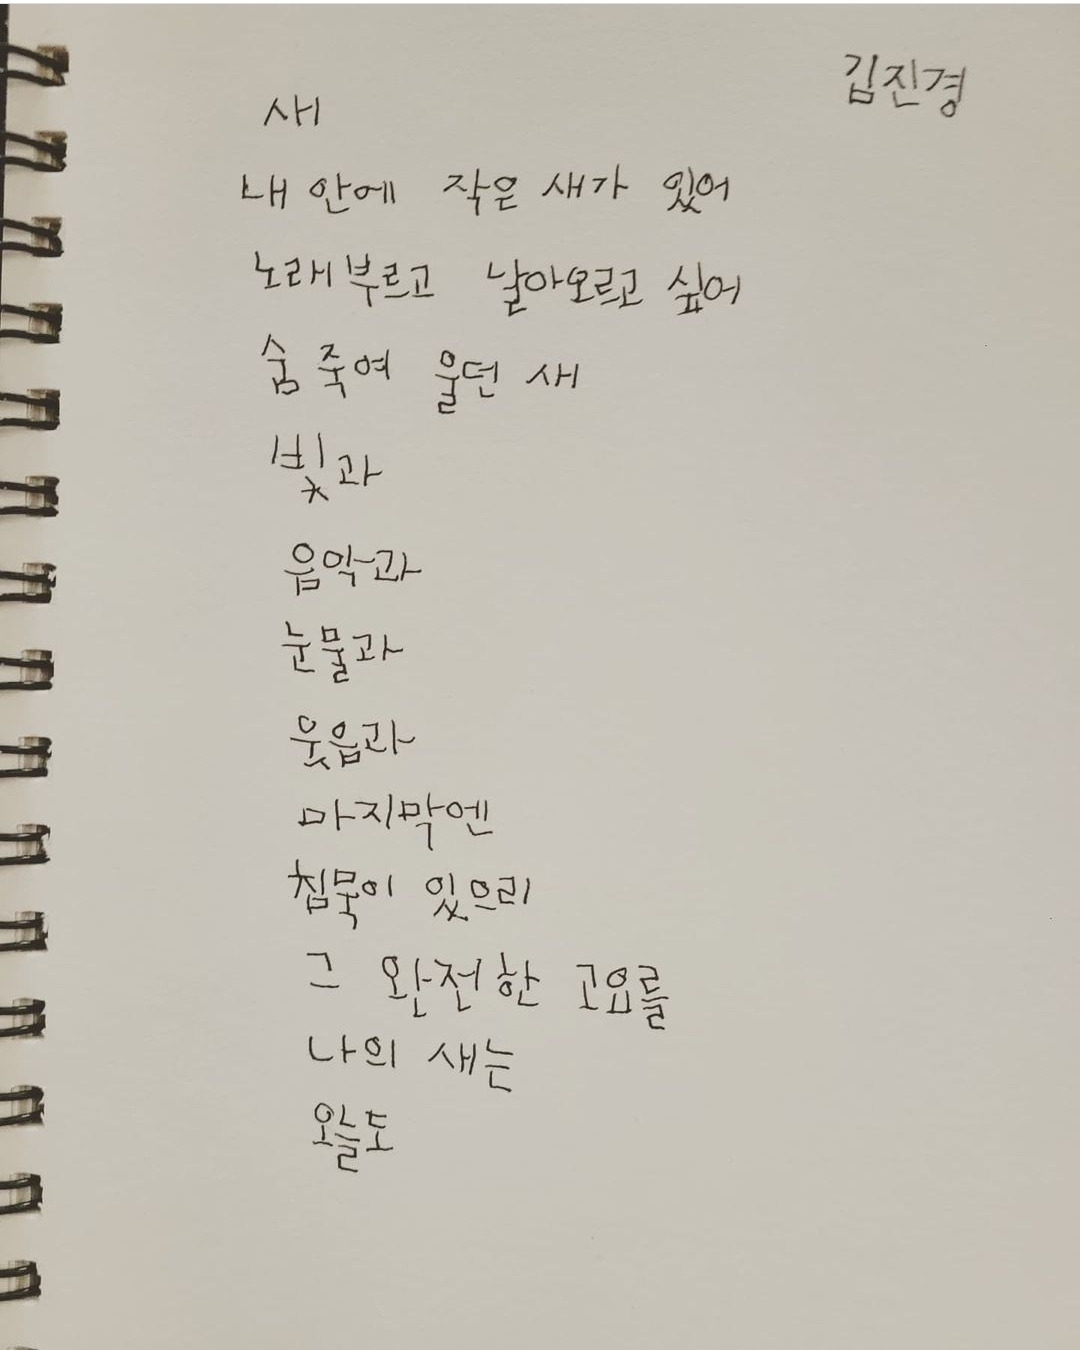 김진경
새
내 안에 작은 새가 있어
노래부르고 날아오르고 싶어
숨 죽여 울던 새
빛과
음악과
눈물과
웃음과
마지막엔
침묵이 있으리
그 완전한 고요를
나의 새는
오늘도